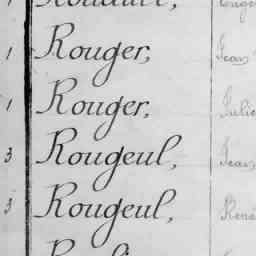 1 Rouger, Jean
1 Rouger, Julie
3 Rougeul, Jean
3 Rougeul, René